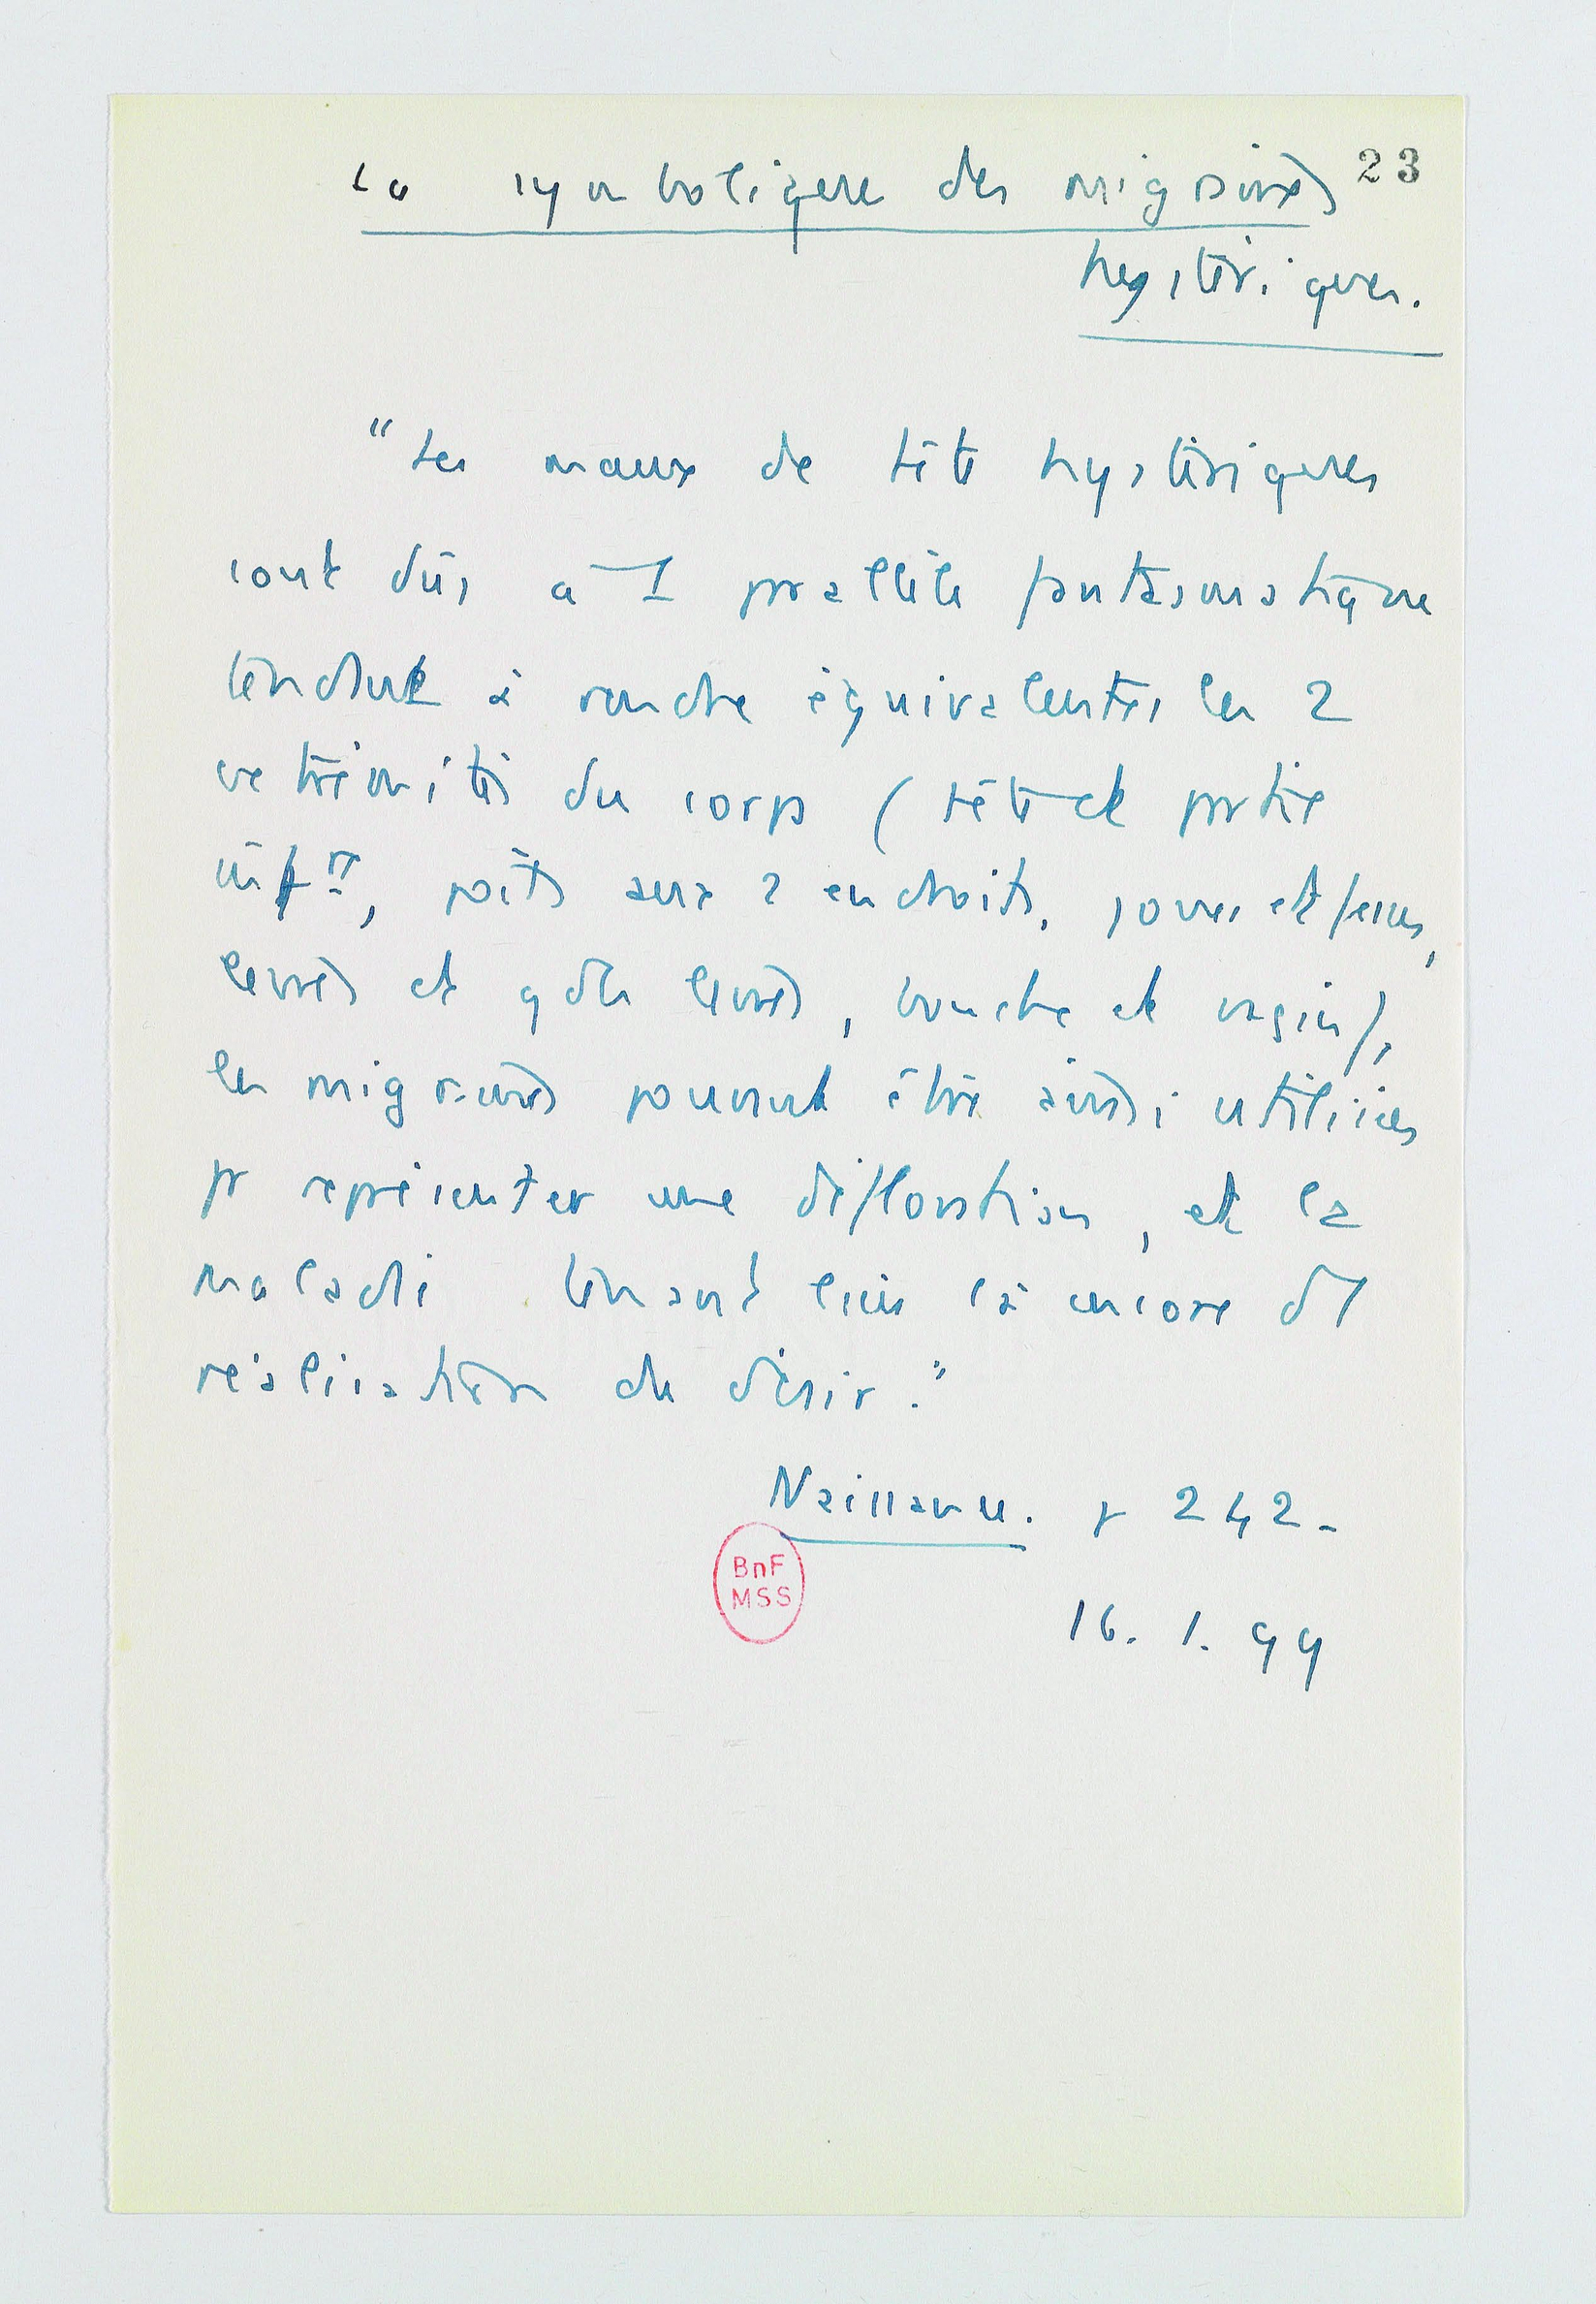 La symbolique des migraines 23
hystériques.
"Les maux de tête hystériques
sont dûs à 1 parallèle fantasmatique
tendant à rendre équivalentes les 2
extrémités du corps (tête et partie
infre, poils aux 2 endroits, joues et fesses,
lèvres et gdes lèvres, bouche et vagin),
les migraines pouvant être ainsi utilisées
pr représenter une défloration, et la
maladie tenant lieu là encore de
réalisation du désir."
Naissance. p 242-
BnF
MSS
16. 1. 99